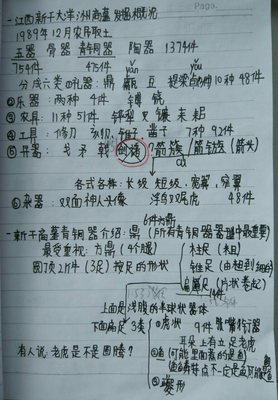 一江西新干大洋洲商墓发掘概况
1989年12月农民取土
玉器 骨器 青铜器 陶器 1374件
754件 475件
分成六类 ①礼器：鼎 甗 豆 提梁卣 10种 48件
②乐器：两种 4件 镈 铙
③农具 11种 51件 犁 锸 耒 耜
④工具：修刀 凿子 7种 92件
⑤兵器：戈 矛 戟 箭镞 / 箭镞 (箭头)
各式各样：长线 短线 宽翼 窄翼
⑥杂器：双面神人头像 浮鸟双尾虎 48件
6件为新
一新干商墓青铜器介绍：鼎 (所有青铜器器型中最重要)
最受重视：方鼎 (4个腿)
圆顶 21件 (3足) 按足的形状
柱足 (粗)
锥足 (由粗到细)
扁足 (片状卷起)
14件
上面是浅腹的半球状器体
下面扁足 3类
①虎状 9件 张嘴獠牙
耳朵上有立足老虎
有人说：老虎是不是图腾？
②鱼 (可能里面煮的是鱼)
③夔形